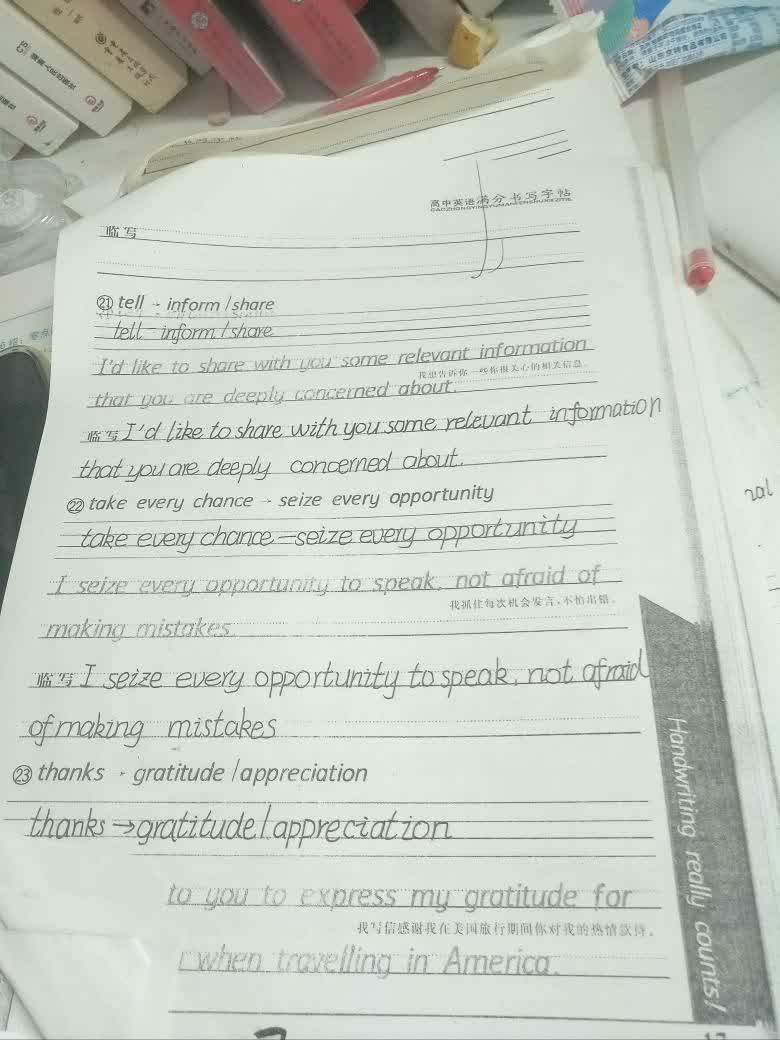 高中英语满分书写字帖
GAOZHONGYINGYUMANFENSHUXIEZITIE
临写
㉑ tell → inform / share
tell - inform / share
I'd like to share with you some relevant information
我想告诉你一些你很关心的相关信息。
that you are deeply concerned about.
临写 I'd like to share with you some relevant information
that you are deeply concerned about.
㉒ take every chance → seize every opportunity
take every chance — seize every opportunity
I seize every opportunity to speak, not afraid of
我抓住每次机会发言,不怕出错。
making mistakes.
临写 I seize every opportunity to speak, not afraid
of making mistakes
㉓ thanks → gratitude / appreciation
thanks → gratitude / appreciation
to you to express my gratitude for
我写信感谢我在美国旅行期间你对我的热情款待。
when travelling in America.
Handwriting really counts!